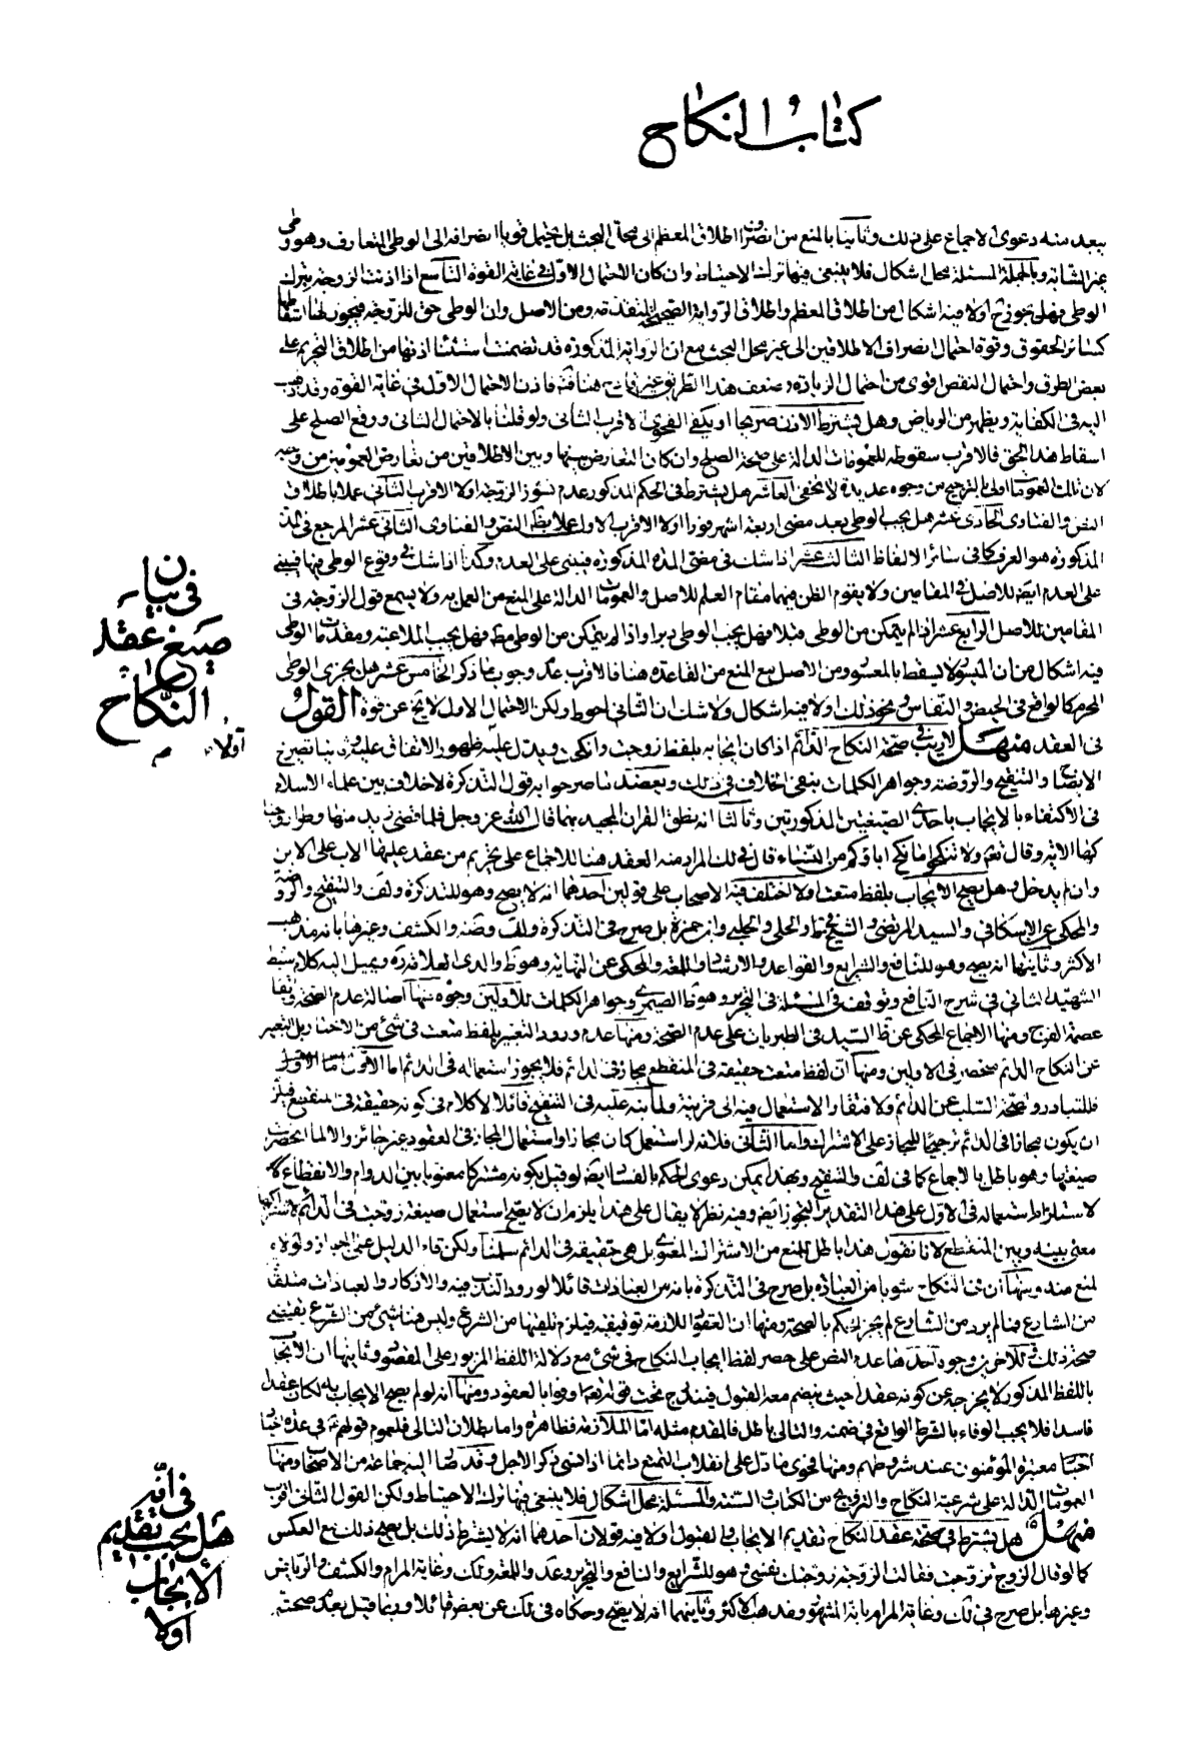 كتاب النكاح
يبعد منه دعوى الاجماع على ذلك وثانيا بالمنع من اطلاق المعظم الى محل البحث بل يحتمل قويا انصرافه الى الوطى المتعارف وهو وطى
غير الشابة وبالجملة المسئلة محل اشكال فلا ينبغى فيها ترك الاحتياط وان كان الاحتمال الاول فى غاية القوة التاسع اذا اذنت الزوجة بترك
الوطى فهل يجوز ح اولا فيه اشكال من اطلاق المعظم واطلاق الرواية الصحيحة المتقدمة ومن الاصل وان الوطى حق للزوجة فيجوز لها اسقاطها
كسائر الحقوق وقوة احتمال انصراف الاطلاقين الى غير محل البحث مع ان الرواية المذكورة قد تضمنت استثناء اذنها من اطلاق التحريم على
بعض الطرق واحتمال النقص اقوى من احتمال الزيادة وضعف هذا الطريق غير هنا فاذن الاحتمال الاول فى غاية القوة وقد ذهب
اليه فى الكفاية ويظهر من الرياض وهل يشترط الاذن صريحا او يكفى الفحوى الاقرب الثانى ولو قلنا بالاحتمال الثانى ووقع الصلح على
اسقاط هذا الحق فالاقرب سقوطه للعمومات الدالة على صحة الصلح وان كان التعارض بينها وبين الاطلاقين من تعارض العمومين من وجه
لان تلك العمومات اولى بالترجيح من وجوه عديدة لا تخفى العاشر هل يشترط فى الحكم المذكور عدم نشوز الزوجة اولا الاقرب الثانى عملا باطلاق
النص والفتاوى الحادى عشر هل يجب الوطى بعد مضى اربعة اشهر فورا اولا الاقرب الاول عملا بظ النص والفتاوى الثانى عشر المرجع فى المدة
المذكورة هو العرف كما فى سائر الالفاظ الثالث عشر اذا شك فى مضى المدة المذكورة فيبنى على العدم وكذا اذا شك فى وقوع الوطى فيها فيبنى
على العدم ايضا للاصل فى المقامين ولا يقوم الظن فيهما مقام العلم للاصل والعمومات الدالة على المنع من العمل به ولا يسمع قول الزوجة فى
المقامين للاصل الرابع عشر اذا لم يتمكن من الوطى قبلا فهل يجب الوطى دبرا واذا لم يتمكن من الوطى مط فهل يجب الملاعبة ومقدمات الوطى
فيه اشكال من ان الميسور لا يسقط بالمعسور ومن الاصل مع المنع من القاعدة هنا فالاقرب عدم وجوب ما ذكر الخامس عشر هل يجزى الوطى
المحرم كالواقع فى الحيض والنفاس ونحو ذلك اولا فيه اشكال ولا شك ان الثانى احوط ولكن الاحتمال الاول لا يخ عن قوة القول
فى العقد منهل لا ريب فى صحة النكاح الدائم اذا كان ايجابه بلفظ زوجت وانكحت ويدل عليه ظهور الاتفاق عليه وثانيا تصريح
الايضاح والتنقيح والروضة وجواهر الكلمات بنفى الخلاف فى ذلك ويعضد ما صرحوا به قول التذكرة لا خلاف بين علماء الاسلام
فى الاكتفاء بالايجاب باحدى الصيغتين المذكورتين وثالثا انه نطق القران المجيد بهما قال الله عز وجل فلما قضى زيد منها وطرا زوجنا
كها الاية وقال تعم ولا تنكحوا ما نكح اباؤكم من النساء قال فى لك المراد منه العقد هنا للاجماع على تحريم من عقد عليها الاب على الابن
وان لم يدخل وهل يصح الايجاب بلفظ متعت اولا اختلف فيه الاصحاب على قولين احدهما انه لا يصح وهو للتذكرة ولف والتنقيح والروضة
والمحكى عن الاسكافى والسيد المرتضى والشيخ حماد والحلى والحلبى وابن حمزة بل صرح فى التذكرة ولف وضه والكشف وغيرها بانه مذهب
الاكثر وثانيهما انه يصح وهو للنافع والشرايع والقواعد والارشاد واللمعة والمحكى عن النهاية وهو ظ والدى العلامة ره ويميل اليه كلام سبط
الشهيد الثانى فى شرح النافع وتوقف فى المسئلة فى التحرير وهو ظ الصيمرى وجواهر الكلمات للاولين وجوه منها اصالة عدم الصحة وبقاء
عصمة الفرج ومنها الاجماع المحكى عن ظ السيد فى الطبريات على عدم الصحة ومنها عدم ورود التعبير بلفظ متعت فى شئ من الاخبار بل التعبير
عن النكاح الدائم منحصر فى الاولين ومنها ان لفظ متعت حقيقة فى المنقطع مجاز فى الدائم فلا يجوز استعماله فى الدائم اما الاول
فللتبادر وصحة السلب عن الدائم ولافتقار الاستعمال فيه الى قرينة ولما نبه عليه فى التنقيح قائلا لا كلام فى كونه حقيقة فى المنقطع فيلزم
ان يكون مجازا فى الدائم ترجيحا للمجاز على الاشتراك واما الثانى فلانه لو استعمل كان مجازا واستعمال المجاز فى العقود غير جائز والا لما انحصرت
صيغها وهو باطل بالاجماع كما فى لف والتنقيح وبهذا يمكن دعوى الحكم بالفساد ايضا لو قيل بكونه مشتركا معنويا بين الدوام والانقطاع
لاستلزام استعماله فى الاول على هذا التقدير التجوز ايضا وفيه نظر لا يقال على هذا يلزم ان لا يصح استعمال صيغة زوجت فى الدائم لاشتراكها
معنى بينه وبين المنقطع لانا نقول هذا باطل للمنع من الاشتراك المعنوى بل هى حقيقة فى الدائم سلمنا ولكن قام الدليل على الجواز ولولاه
لمنع منه ومنها ان فى النكاح شوبا من العبادة بل صرح فى التذكرة بانه من العبادات قائلا لورود الندب فيه والاذكار والعبادات متلقاة
من الشارع فما لم يرد من الشارع لم يجز الحكم بالصحة ومنها ان العقود اللازمة توقيفية فيلزم تلقيها من الشرع وليس هنا شئ من الشرع يقتضى
صحة ذلك وللاخرين وجوه احدها عدم النص على حصر لفظ ايجاب النكاح فى شئ مع دلالة اللفظ المزبور على المقصود وثانيها ان الايجاب
باللفظ المذكور لا يخرجه عن كونه عقدا حيث ينضم معه القبول فيندرج تحت قوله تعم اوفوا بالعقود ومنها انه لو لم يصح الايجاب به لكان عقدا
فاسدا فلا يجب الوفاء بالشرط الواقع فى ضمنه والتالى باطل فالمقدم مثله اما الملازمة فظاهرة واما بطلان التالى فلعموم قولهم ع فى عدة اخبار
معتبرة المؤمنون عند شروطهم ومنها فحوى ما دل على انقلاب التمتع دائما اذا نسى ذكر الاجل وقد صار اليه جماعة من الاصحاب ومنها
العمومات الدالة على شرعية النكاح والتزويج من الكتاب والسنة والمسئلة محل اشكال فلا ينبغى فيها ترك الاحتياط ولكن القول الثانى اقرب
منهل هل يشترط فى صحة عقد النكاح تقديم الايجاب على القبول اولا فيه قولان احدهما انه لا يشترط ذلك بل يصح ذلك مع العكس
كما لو قال الزوج تزوجت فقالت الزوجة زوجتك نفسى وهو للشرايع والنافع والتحرير وعد واللمعة ولك وغاية المرام والكشف والرياض
وغيرها بل صرح فى لك وغاية المرام بانه المشهور وقد ذهب الاكثر وثانيهما انه لا يصح وحكاه فى لك عن بعض قائلا وربما قيل بعدم صحته
فى بيان
صيغ عقد
النكاح
اولا
فى انه
هل يجب تقديم
الايجاب
اولا